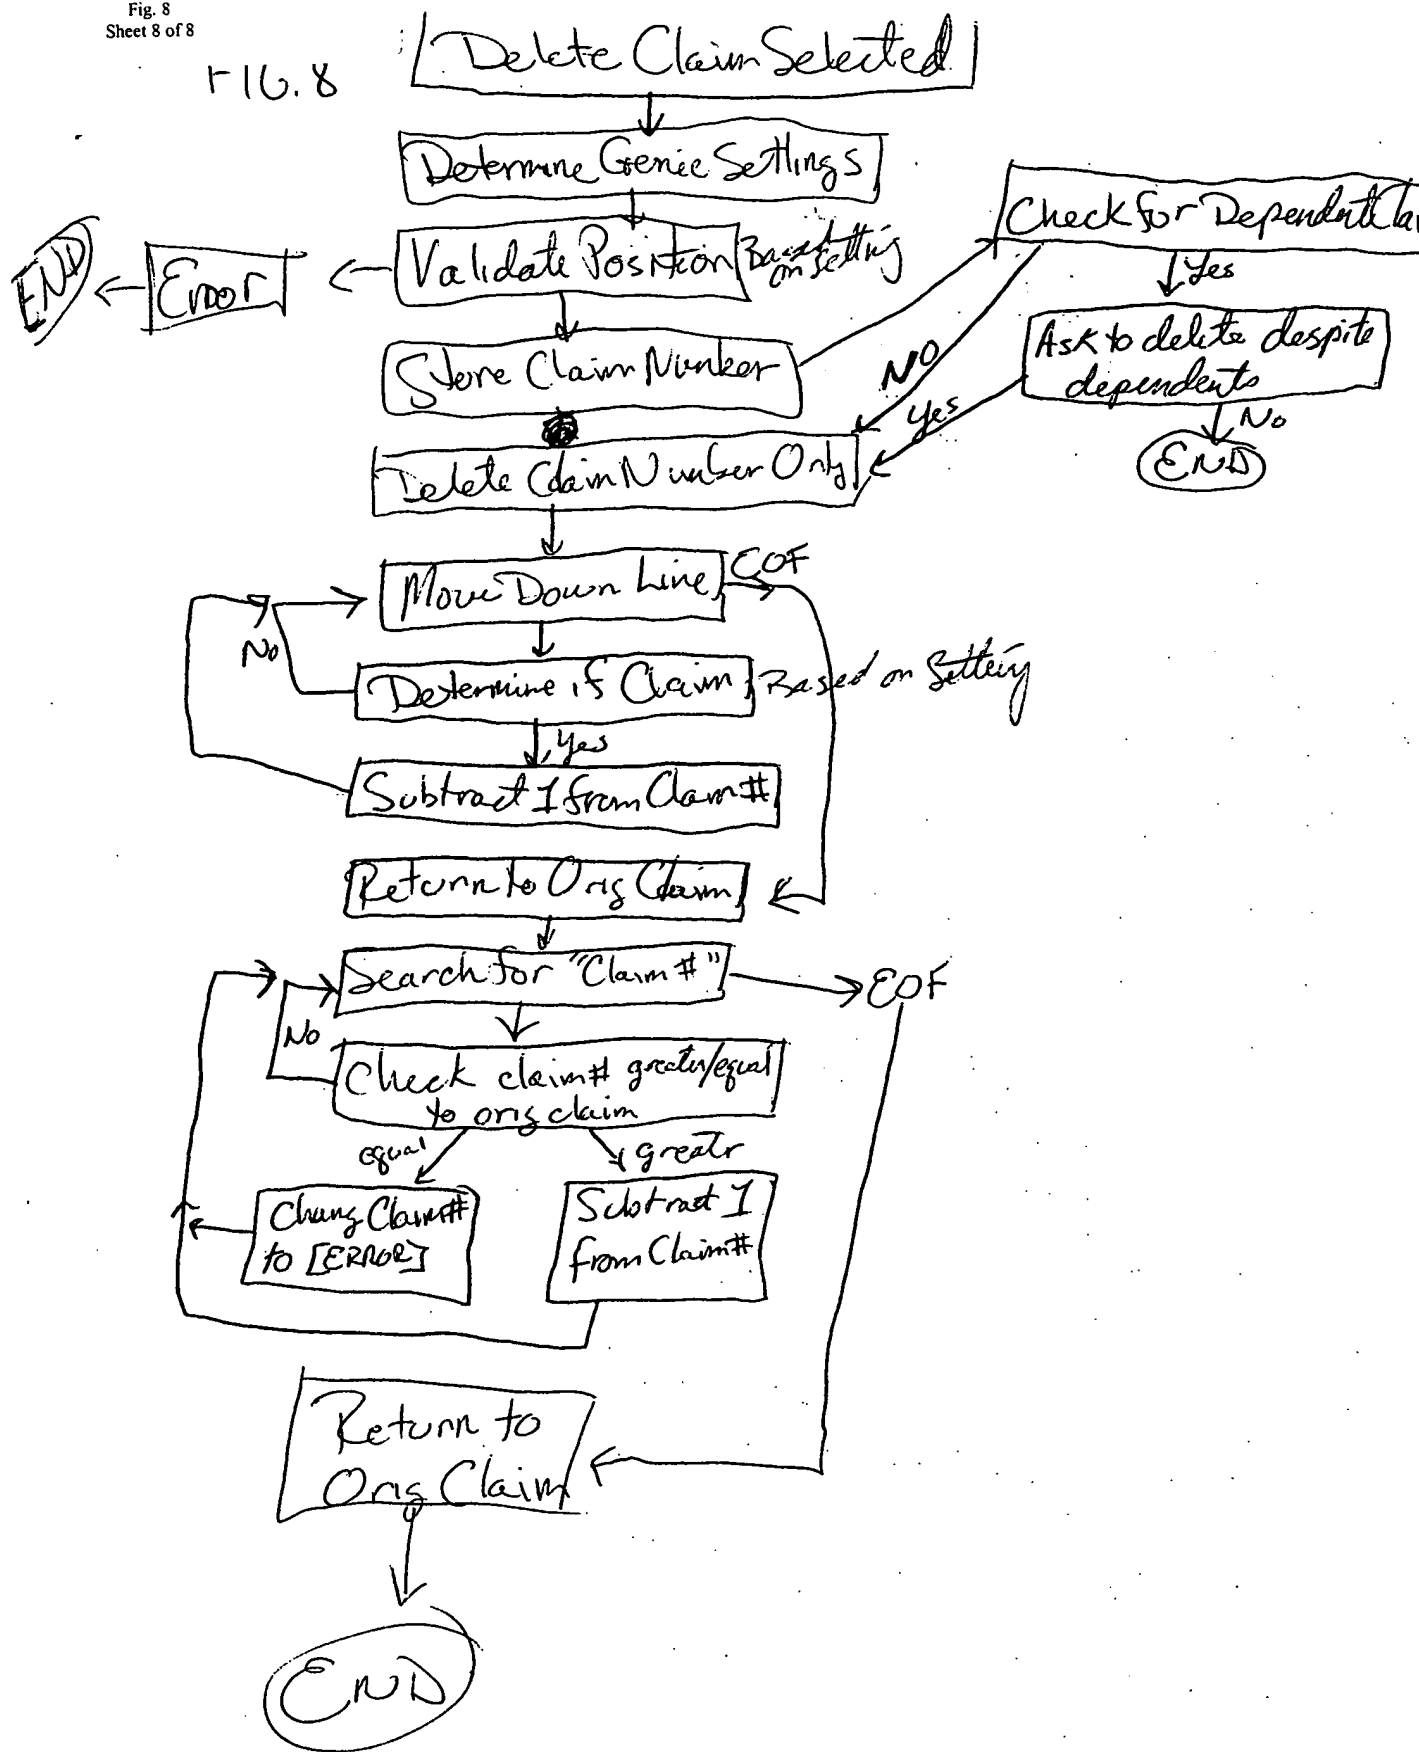 Fig. 8
Sheet 8 of 8
FIG. 8
Delete Claim Selected
Determine Genie Settings
Check for Dependent Clai
Validate Position
Based
on Setting
Yes
Error
END
Ask to delete despite
dependents
Store Claim Number
NO
Yes
No
END
Delete Claim Number Only
Move Down Line
EOF
No
Determine if Claim
Based on Setting
Yes
Subtract 1 from Claim #
Return to Orig Claim
Search for "Claim #"
EOF
No
Check claim # greater/equal
to orig claim
equal
greatr
Chang Claim #
to [ERROR]
Subtract 1
from Claim #
Return to
Orig Claim
END